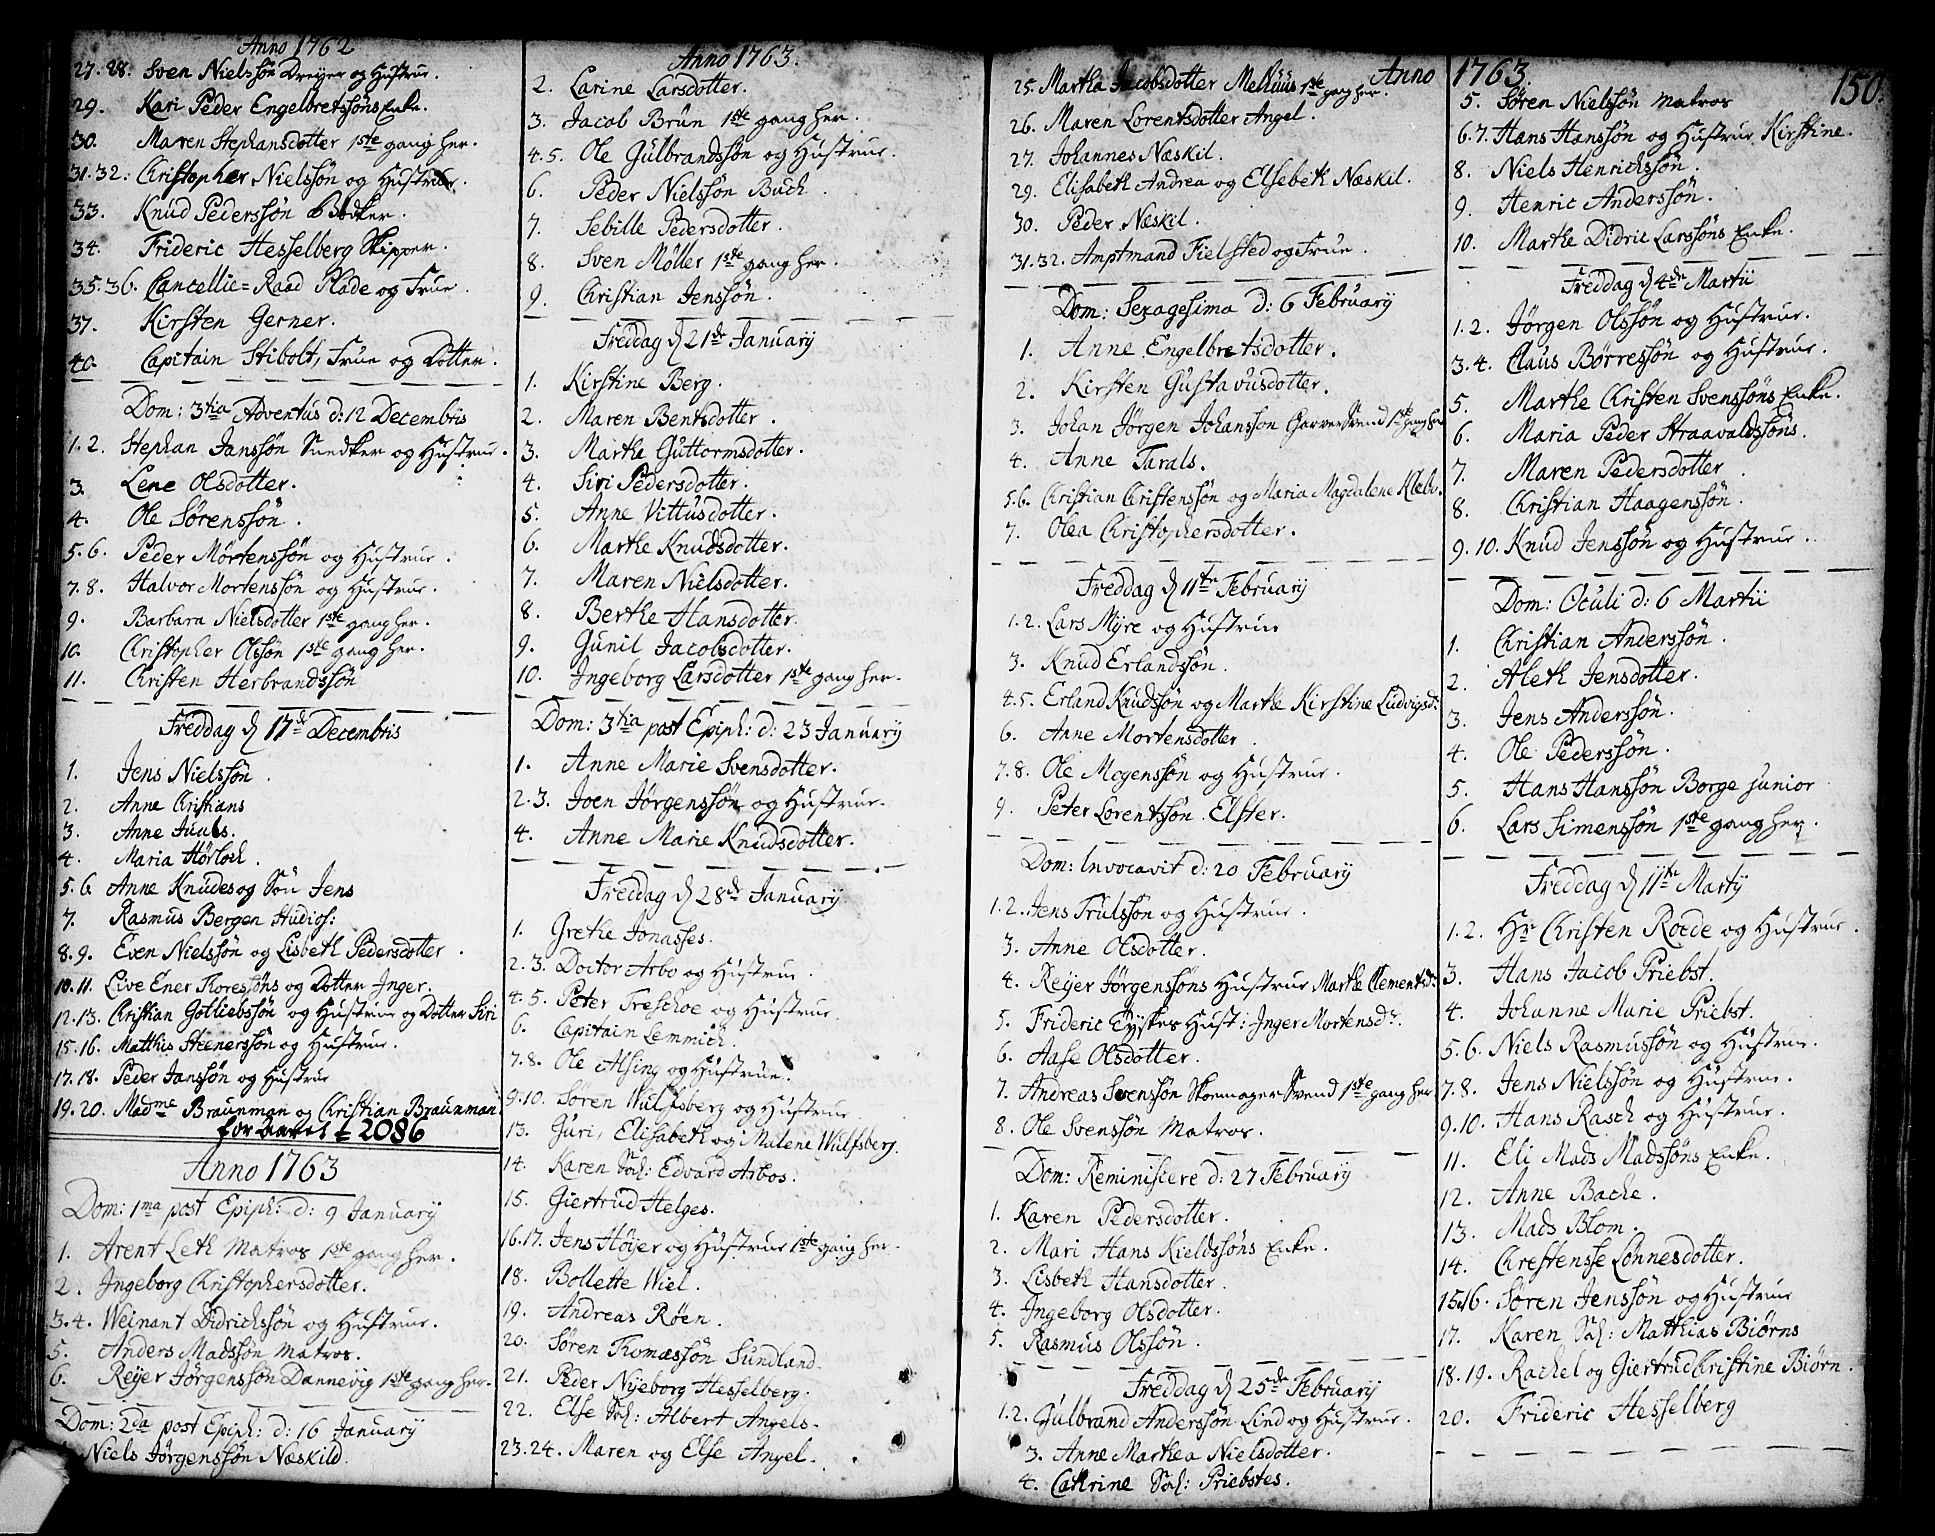 Anno 1762
27. 28. Sven Nielssön Dreyer og Hustrue.
29. Kari Peder Engelbretssöns Enke.
30. Maren Stephansdotter 1ste gang her.
31. 32. Christopher Nielssön og Hustrue.
33. Knud Pederssön Bödker.
34. Frideric Hesselberg Skipper.
35. 36. Cancellie=Raad Plade og Frue.
37. Kirsten Gerner.
40. Capitain Stibolt, Frue og Dotter.
Dom: 3tia Adventus d: 12 Decembris
1. 2. Stephan Janssön Snedker og Hustrue.
3. Lene Olsdotter.
4. Ole Sörenssön.
5. 6. Peder Mortenssön og Hustrue.
7. 8. Halvor Mortenssön og Hustrue.
9. Barbara Nielsdotter 1ste gang her.
10. Christopher Olssön 1ste gang her.
11. Christen Herbrandssön
Freddag d 17de Decembris
1. Jens Nielssön.
2. Anne Christians
3. Anne Juuls.
4. Maria Hörloch.
5. 6 Anne Knudes og Sön Jens
7. Rasmus Bergen Studios:
8. 9. Even Nielssön og Lisbeth Pedersdotter.
10. 11. Live Ener Thoressöns og Dotter Inger.
12. 13. Christian Gotliebssön og Hustrue og Dotter Siri
15. 16. Matthis Steenerssön og Hustrue.
17. 18. Peder Janssön og Hustrue
19. 20. Madme Braunman og Christian Braunman
for aaret = 2086
Anno 1763
Dom: 1ma post Epiph: d: 9 January
1. Arent Leth Matros 1ste gang her.
2. Ingeborg Christophersdotter.
3. 4. Weinant Didrichssön og Hustrue.
5. Anders Madssön Matros.
6. Reyer Jörgenssön Dannevig 1ste gang her.
Dom: 2da post Epiph: d: 16 January
Niels Jörgenssön Næskild.
Anno 1763.
2. Larine Larsdotter.
3. Jacob Brün 1ste gang her.
4. 5. Ole Gulbrandssön og Hustrue.
6. Peder Nielssön Buch.
7. Sebille Pedersdotter.
8. Sven Möller 1ste gang her.
9. Christian Jenssön.
Freddag d 21de January
1. Kirstine Berg.
2. Maren Bentsdotter.
3. Marthe Guttormsdotter.
4. Siri Pedersdotter.
5. Anne Vittusdotter.
6. Marthe Knudsdotter.
7. Maren Nielsdotter.
8. Berthe Hansdotter.
9. Gunil Jacobsdotter.
10. Ingeborg Larsdotter 1ste gang her.
Dom: 3tia post Epiph: d: 23 January
1. Anne Marie Svensdotter.
2. 3. Joen Jörgenssön og Hustrue.
4. Anne Marie Knudsdotter.
Freddag d 28de January
1. Grethe Jonasses.
2. 3. Doctor Arbo og Hustrue.
4. 5. Peter Treschoe og Hustrue.
6. Capitain Lemmich.
7. 8. Ole Alsing og Hustrue.
9. 10. Sören Wulfsberg og Hustrue
13. Guri, Elisabeth og Malene Wulfsberg.
14. Karen Sal: Edvard Arbos.
15. Giertrud Helges.
16. 17. Jens Höyer og Hustrue 1ste gang her.
18. Bollette Wiel.
19. Andreas Röen.
20. Sören Thomæssön Sundland.
21. Peder Nyeborg Hesselberg.
22. Else Sal: Albert Angels.
23. 24. Maren og Else Angel.
Anno 1763. 150.
25. Martha Jacobsdotter Melhuus 1ste gang her.
26. Maren Lorentsdotter Angel.
27. Johannes Næskil.
29. Elisabeth Andrea og Elsebeth Næskil.
30. Peder Næskil.
31. 32. Amptmand Fielsted og Frue.
Dom: Sexagesima d: 6 February
1. Anne Engelbretsdotter.
2. Kirsten Gustavusdotter.
3. Johan Jörgen Johanssön Garver Svend 1ste gang her
4. Anne Tarals.
5. 6. Christian Christenssön og Maria Magdalene Klebr.
7. Olea Christophersdotter.
Freddag d 11te February
1. 2. Lars Myre og Hustrue
3. Knud Erlandssön.
4. 5. Erland Knudssön og Marthe Kirstine Ludvigsdr.
6. Anne Mortensdotter.
7. 8. Ole Mogenssön og Hustrue.
9. Peter Lorentssön Elster.
Dom: Invocavit d: 20 February
1. 2. Jens Trulssön og Hustrue.
3. Anne Olsdotter.
4. Reyer Jörgenssöns Hustrue Marthe Clementsdr
5. Frideric Eyskes Hust: Inger Mortensdr.
6. Aase Olsdotter.
7. Andreas Svenssön Skoemager Svend 1ste gang her
8. Ole Svenssön Matros.
Dom: Reminiscere d: 27 February
1. Karen Pedersdotter.
2. Mari Hans Kieldssöns Enke.
3. Lisbeth Hansdotter.
4. Ingeborg Olsdotter.
5. Rasmus Olssön.
Freddag d 25de February
1. 2. Gulbrand Anderssön Lind og Hustrue.
3. Anne Marthea Nielsdotter.
4. Cathrine Sal: Priebstes.
5. Sören Nielssön Matros
6. 7. Hans Hanssön og Hustrue Kirstine.
8. Niels Henrichssön.
9. Henric Anderssön.
10. Marthe Didric Larssöns Enke.
Freddag d 4de Martii
1. 2. Jörgen Olssön og Hustrue.
3. 4. Claus Börressön og Hustrue.
5. Marthe Christen Svenssöns Enke.
6. Maria Peder Straavaldssöns.
7. Maren Pedersdotter.
8. Christian Haagenssön.
9. 10. Knud Jenssön og Hustrue.
Dom: Oculi d: 6 Martii
1. Christian Anderssön.
2. Aleth Jensdotter.
3. Jens Anderssön.
4. Ole Pederssön.
5. Hans Hanssön Borge junior
6. Lars Simenssön 1ste gang her.
Freddag d 11te Marty
1. 2. Hr Christen Roede og Hustrue.
3. Hans Jacob Priebst.
4. Johanne Marie Priebst.
5. 6. Niels Rasmussön og Hustrue.
7. 8. Jens Nielssön og Hustrue.
9. 10. Hans Rasch og Hustrue.
11. Eli Mads Madssöns Enke.
12. Anne Bache.
13. Mads Blom.
14. Chrestense Lonnesdotter.
15. 16. Sören Jenssön og Hustrue
17. Karen Sal: Matthias Biörns
18. 19. Rachel og Giertrud Christine Biörn.
20. Frideric Hesselberg